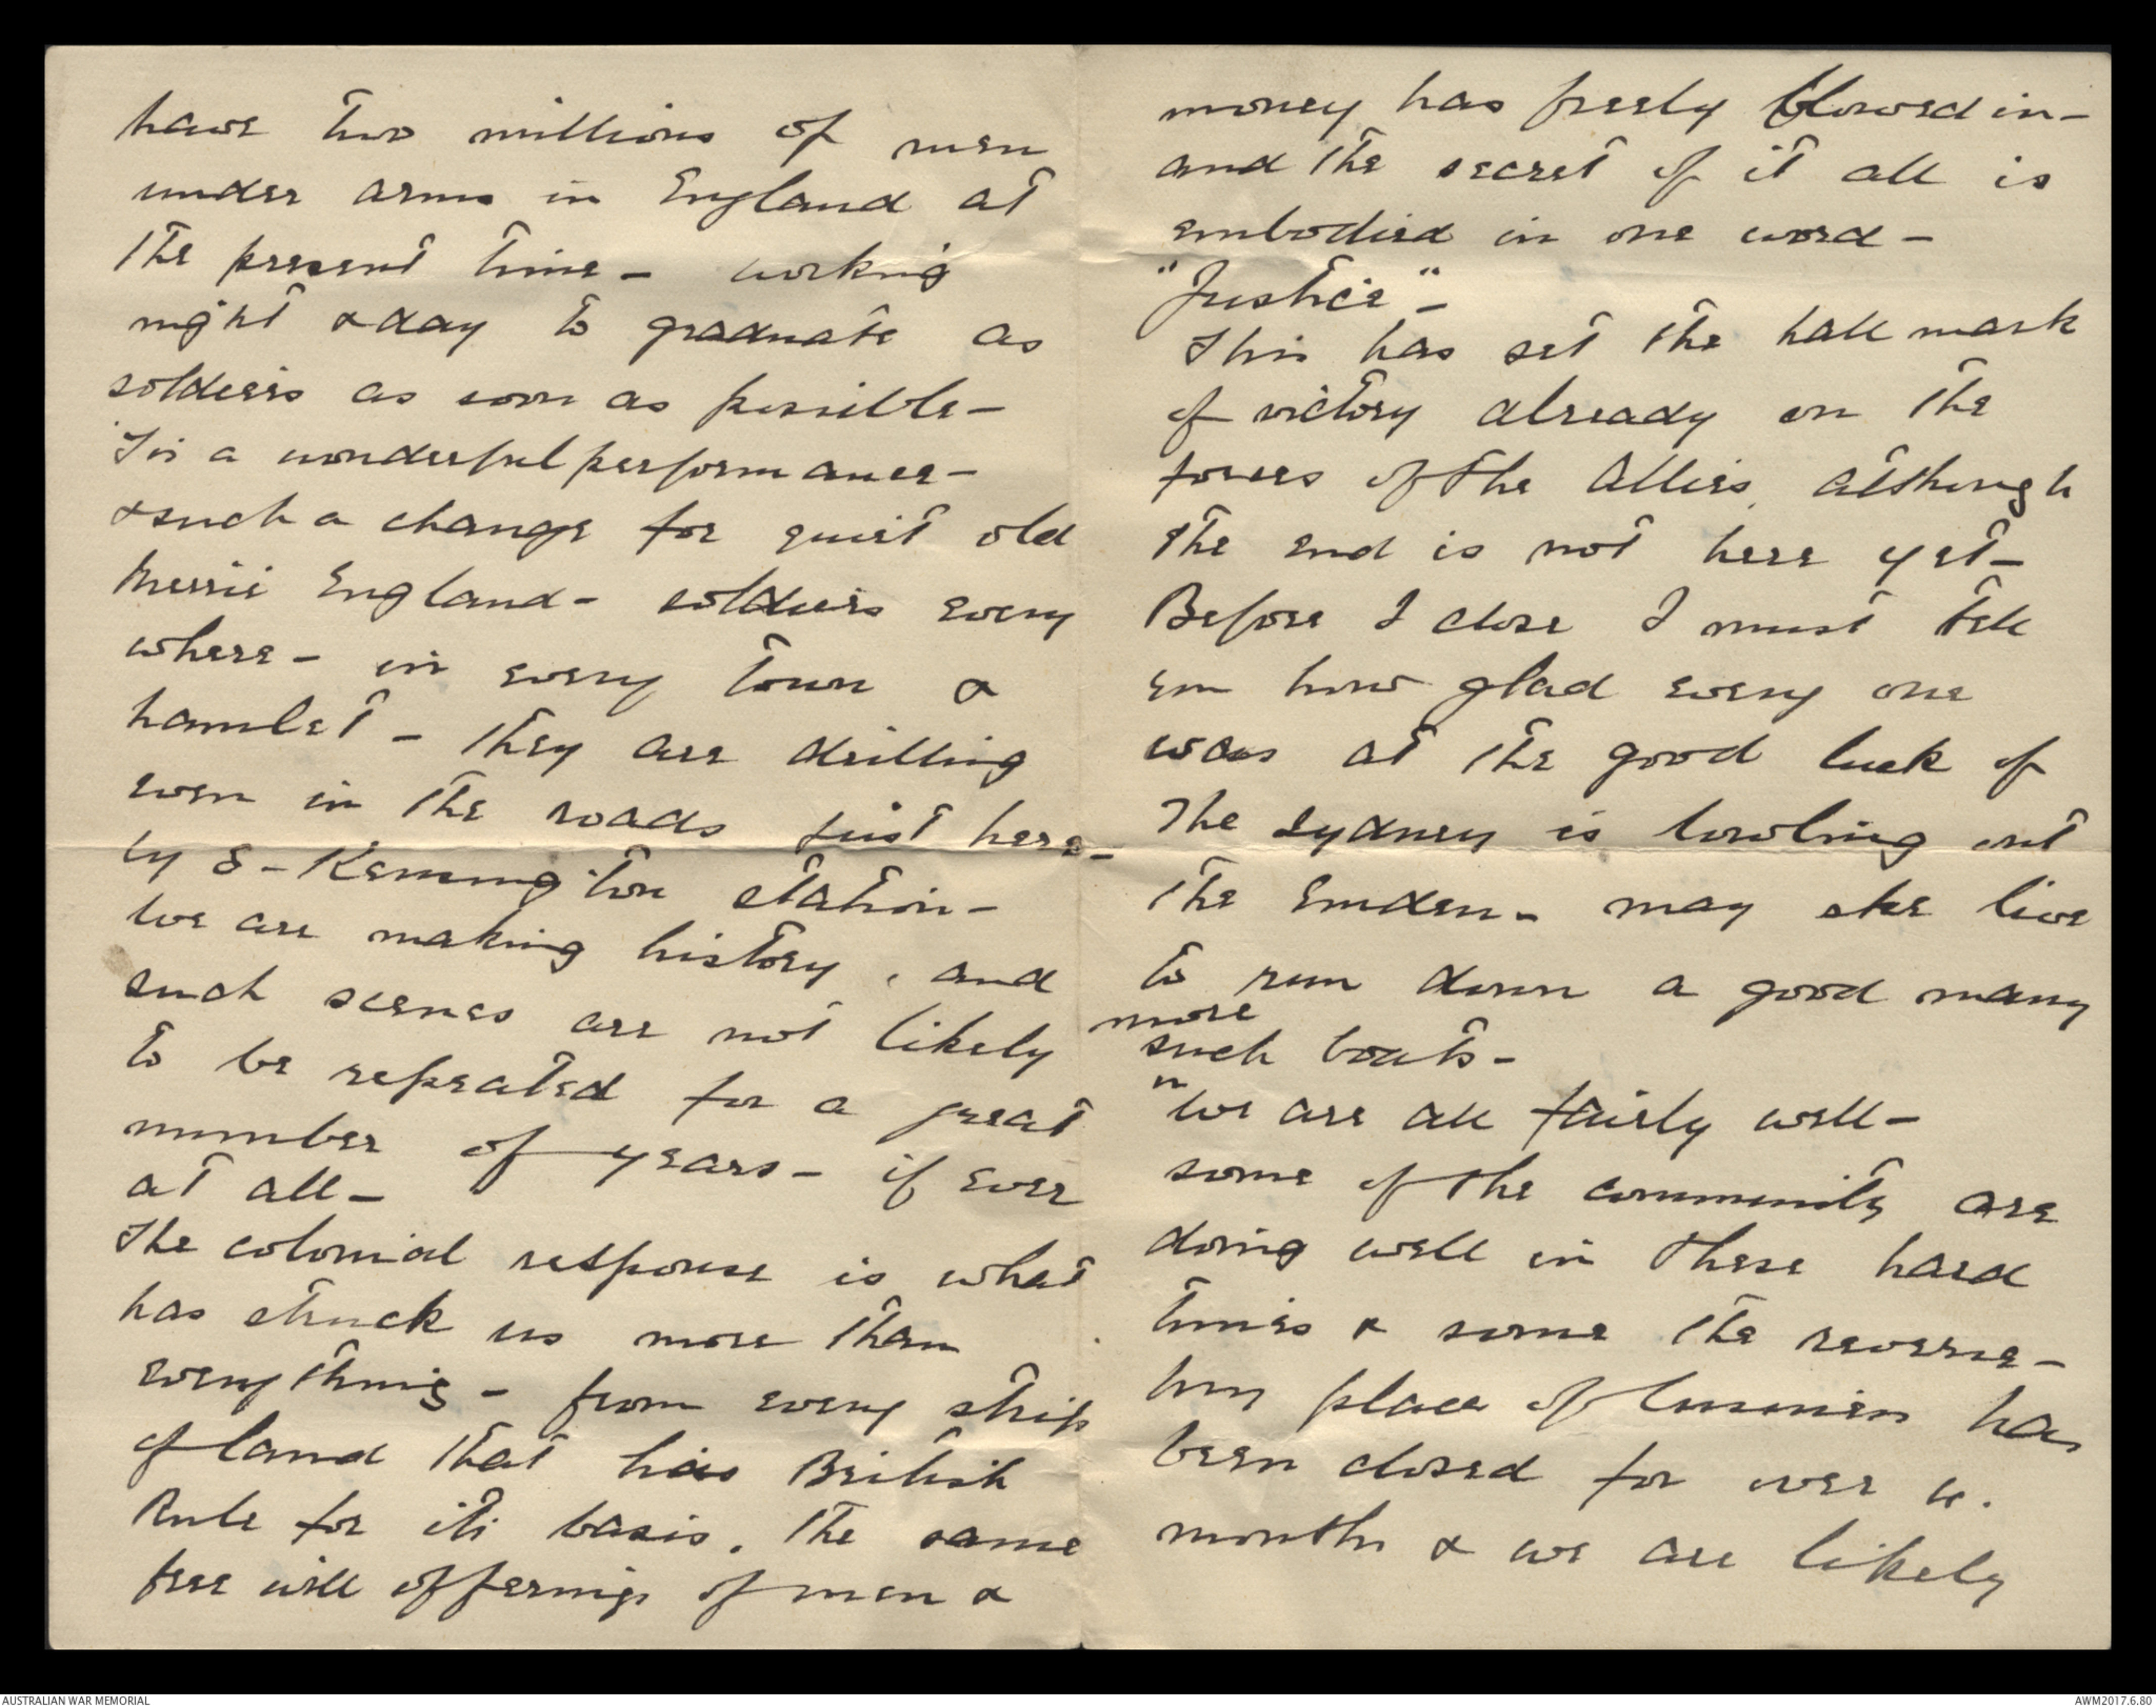 have two millions of men
under arms in England at
the present time - working
night & day to graduate as
soldiers as soon as possible -
'Tis a wonderful performance -
& such a change for quiet old
Merrie England - soldiers every
where - in every town &
hamlet - they are drilling
even in the roads just here -
by S - Kensington station -
We are making history, and
such scenes are not likely
to be repeated for a great
number of years - if ever
at all -
The colonial response is what
has struck us more than
everything - from every strip
of land that has British
Rule for its basis. The same
free will offerings of men &
money has freely flowed in -
and the secret of it all is
embodied in one word -
"Justice" -
This has set the hall mark
of victory already on the
forces of the Allies, although
the end is not here yet -
Before I close I must tell
you how glad every one
was at the good luck of
The Sydney is bowling out
the Emden - may she live
to run down a good many
more
such boats -
We are all fairly well -
some of the community are
doing well in these hard
times & some the reverse -
my place of business has
been closed for over
months & we are likely
AUSTRALIAN WAR MEMORIAL
AWM2017.6.80